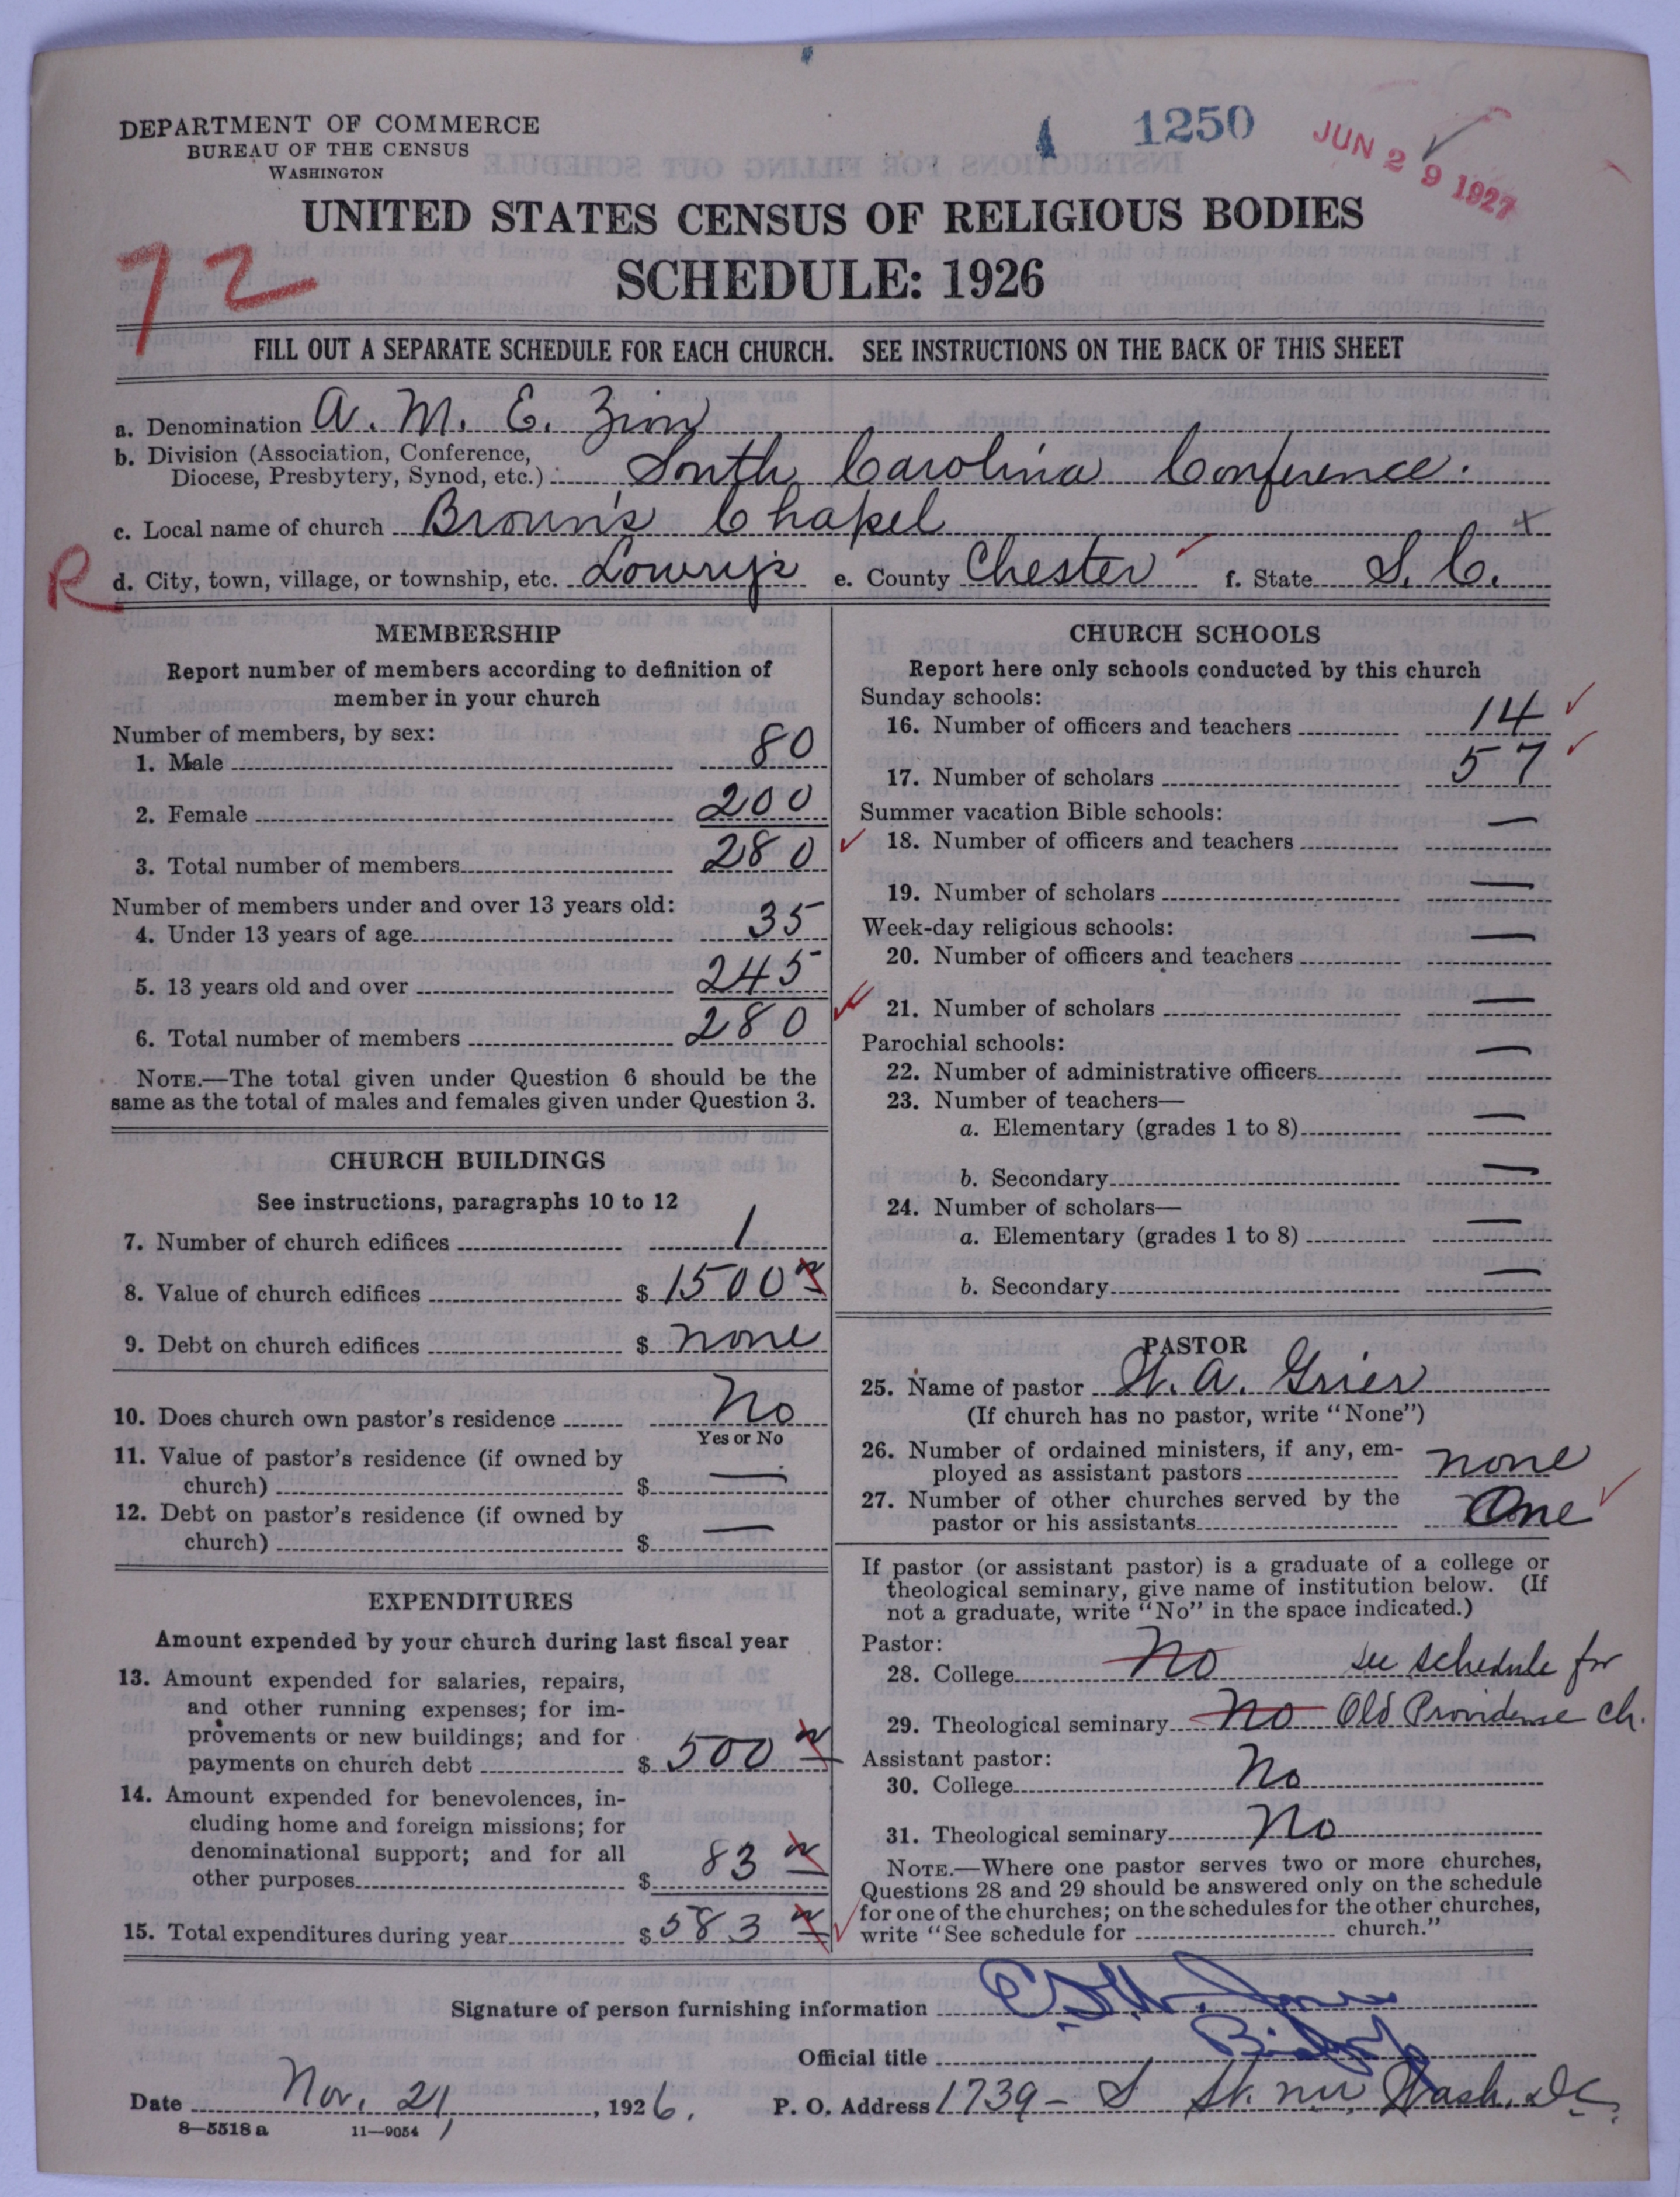 DEPARTMENT OF COMMERCE
BUREAU OF THE CENSUS
WASHINGTON
1250
JUN 29 1927
UNITED STATES CENSUS OF RELIGIOUS BODIES
SCHEDULE: 1926
72
FILL OUT A SEPARATE SCHEDULE FOR EACH CHURCH. SEE INSTRUCTIONS ON THE BACK OF THIS SHEET
a. Denomination A. M. E. Zion
b. Division (Association, Conference,
Diocese, Presbytery, Synod, etc.) South Carolina Conference.
c. Local name of church Brown's Chapel
R
d. City, town, village, or township, etc. Lowry's e. County Chester f. State S. C.
MEMBERSHIP
Report number of members according to definition of
member in your church
Number of members, by sex:
1. Male 80
2. Female 200
3. Total number of members 280
Number of members under and over 13 years old:
4. Under 13 years of age 35
5. 13 years old and over 245
6. Total number of members 280
NOTE.—The total given under Question 6 should be the
same as the total of males and females given under Question 3.
CHURCH BUILDINGS
See instructions, paragraphs 10 to 12
7. Number of church edifices 1
8. Value of church edifices $ 1500
9. Debt on church edifices $ none
10. Does church own pastor's residence No
Yes or No
11. Value of pastor's residence (if owned by
church) $ —
12. Debt on pastor's residence (if owned by
church) $ —
EXPENDITURES
Amount expended by your church during last fiscal year
13. Amount expended for salaries, repairs,
and other running expenses; for im-
provements or new buildings; and for
payments on church debt $ 500
14. Amount expended for benevolences, in-
cluding home and foreign missions; for
denominational support; and for all
other purposes $ 83
15. Total expenditures during year $ 583
CHURCH SCHOOLS
Report here only schools conducted by this church
Sunday schools:
16. Number of officers and teachers 14
17. Number of scholars 57
Summer vacation Bible schools:
18. Number of officers and teachers —
19. Number of scholars —
Week-day religious schools:
20. Number of officers and teachers —
21. Number of scholars —
Parochial schools:
22. Number of administrative officers —
23. Number of teachers—
a. Elementary (grades 1 to 8) —
b. Secondary —
24. Number of scholars—
a. Elementary (grades 1 to 8) —
b. Secondary —
PASTOR
25. Name of pastor W. A. Grier
(If church has no pastor, write "None")
26. Number of ordained ministers, if any, em-
ployed as assistant pastors none
27. Number of other churches served by the
pastor or his assistants One
If pastor (or assistant pastor) is a graduate of a college or
theological seminary, give name of institution below. (If
not a graduate, write "No" in the space indicated.)
Pastor:
28. College No see schedule for
29. Theological seminary No Old Providence ch.
Assistant pastor:
30. College No
31. Theological seminary No
NOTE.—Where one pastor serves two or more churches,
Questions 28 and 29 should be answered only on the schedule
for one of the churches; on the schedules for the other churches,
write "See schedule for church."
Signature of person furnishing information
Official title Bishop
Date Nov. 21, 1926. P. O. Address 1739 - S St. NW, Wash. D.C.
8—5518 a 11—9054